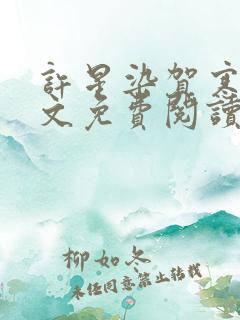 許星染賀寒
文免費閱讀
柳如冬
未經同意禁止轉載